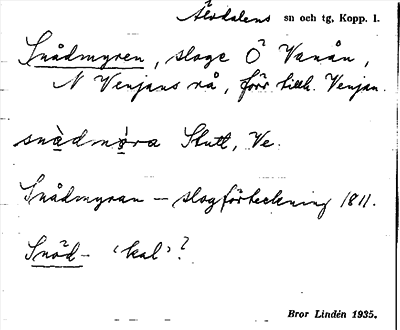 Älvdalens sn och tg, Kopp. l.
Snådmyren, sloge Ö Vanån,
N Venjans rå, förr tillh. Venjan.
snädmỳra Slutt, Ve.
Snådmyran – slogförteckning 1811.
Snöd- 'kal'?
Bror Lindén 1935.